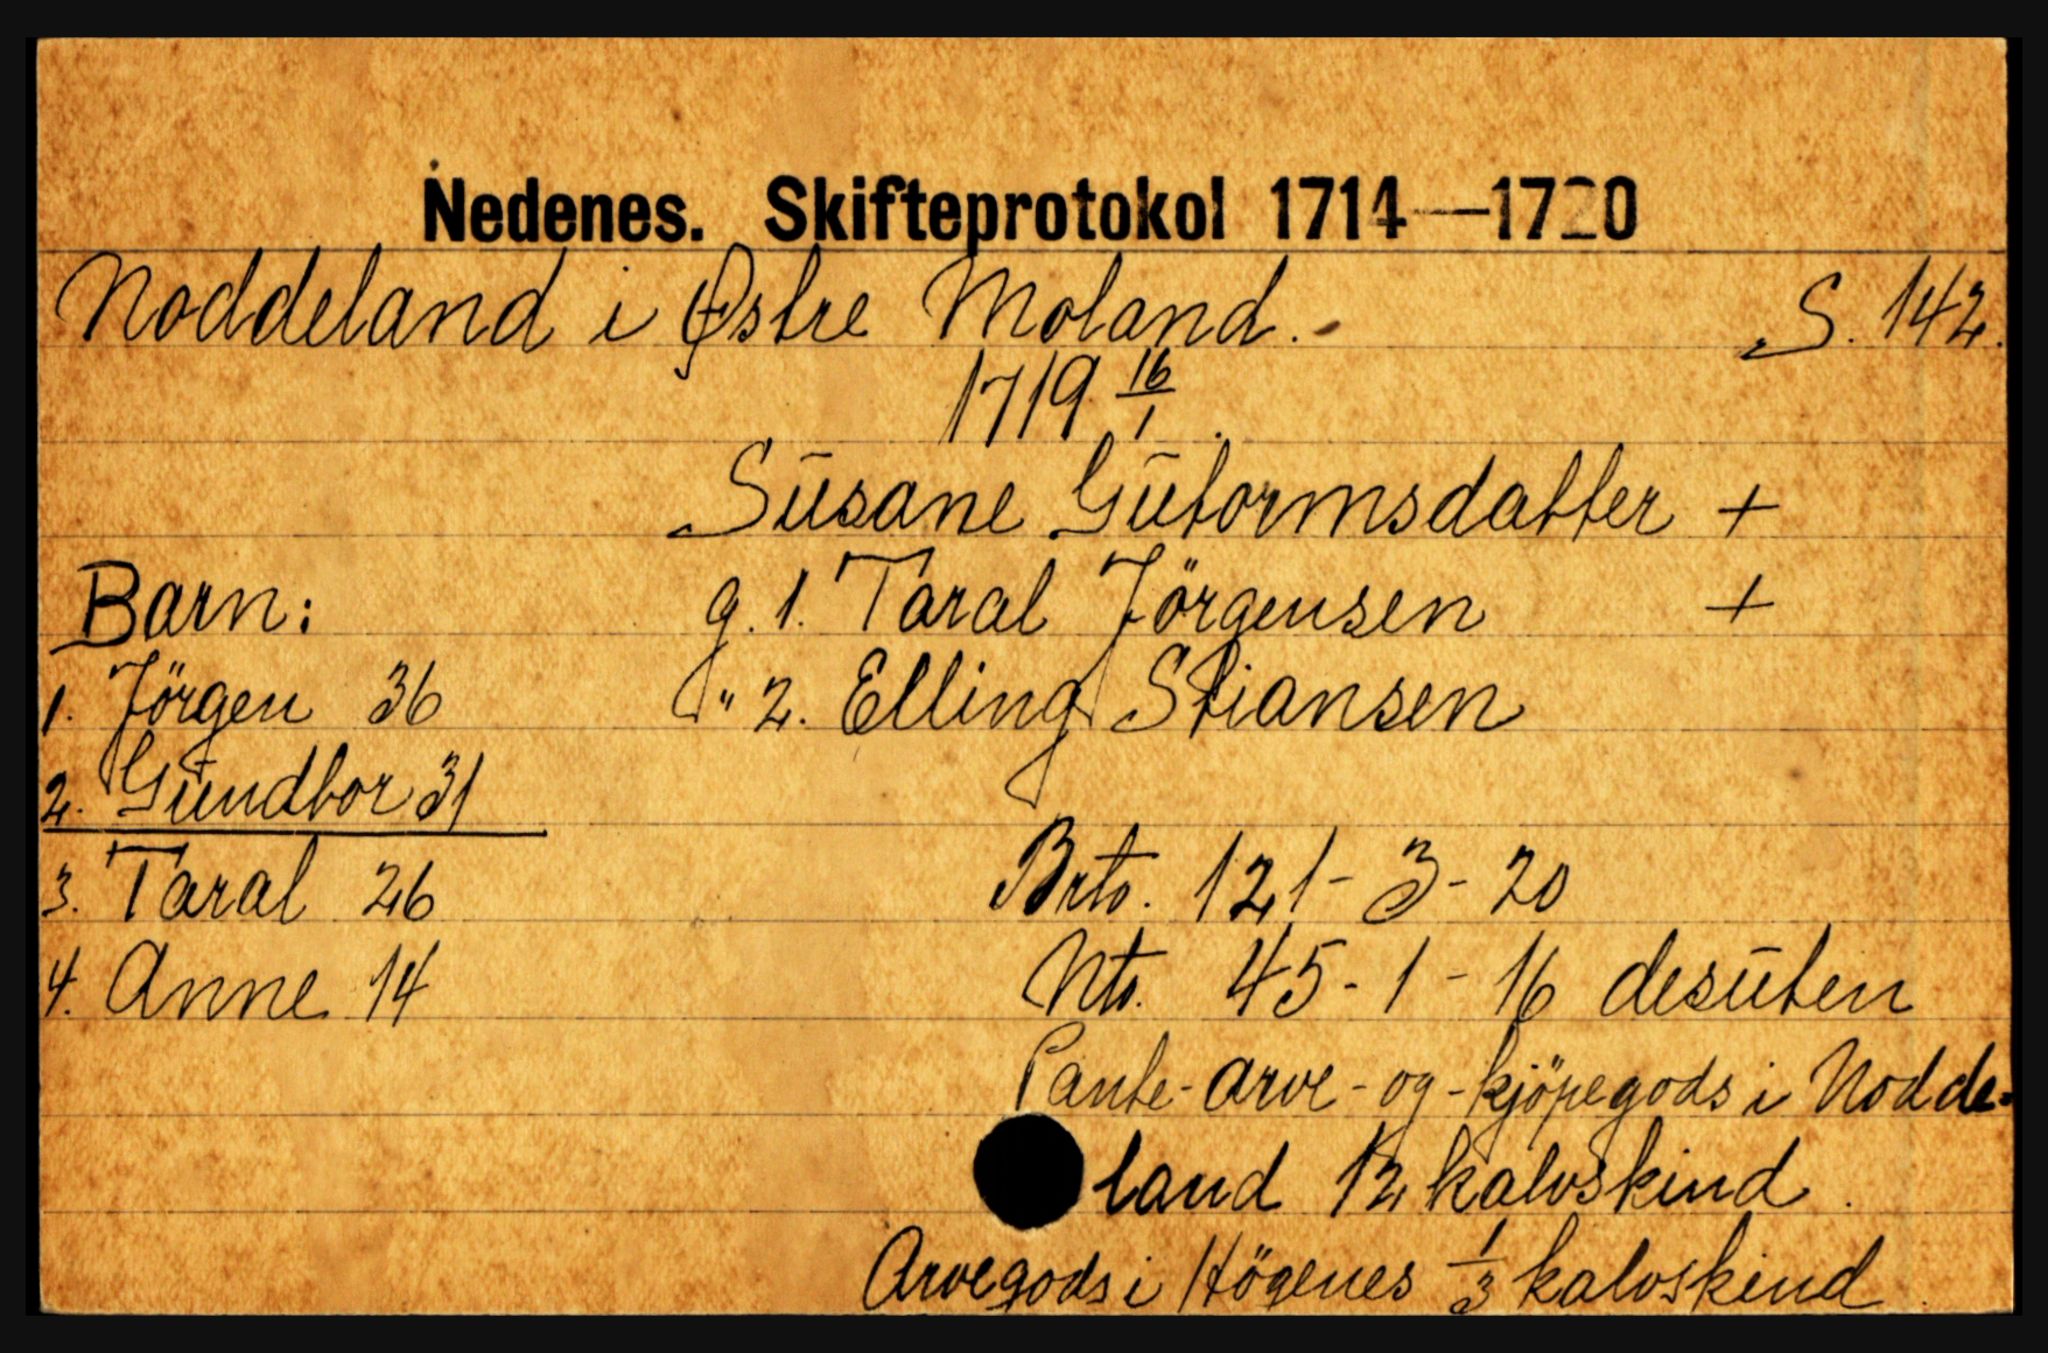 Nedenes. Skifteprotokol 1714—1720
Noddeland i Østre Moland. S. 142.
1719 16/1.
Sūsane Gūtormsdatter +
Barn: g. 1. Taral Jörgensen +
1. Jörgen 36 " 2. Elling Stiansen
2. Gūndbor 31
3. Taral 26 Brto. 121-3-20
4. Anne 14 Nto. 45-1-16 desūten
Pante-arve-og-kjöpegods i Nodde-
land 12 kalvskind.
Arvegods i Högenes 1/3 kalvskind.